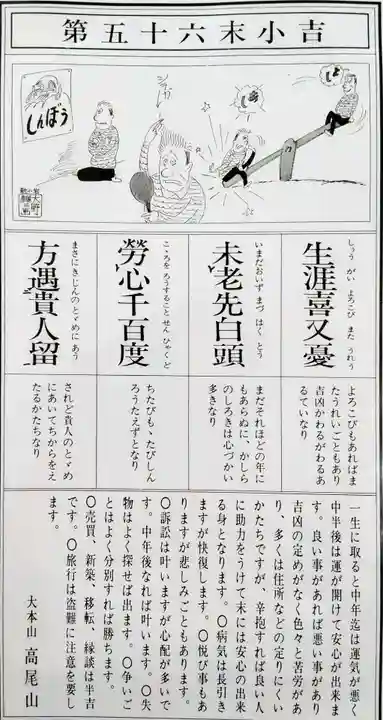 第五十六末小吉
しんぼう
生涯喜又憂
しょう がい よろこび また うれう
よろこびもあればま
たうれいごともあり
吉凶かわるがわるあ
るていなり
未老先白頭
いまだおいず まづ はく とう
まだそれほどの年に
もあらぬに、かしら
のしろきは心づかい
多きなり
勞心千百度
こゝろを ろうすること せん ひゃくど
ちたびも丶たびしん
ろうたえずとなり
方遇貴人留
まさにきじんのとゞめにあう
されど貴人のとゞめ
にあいてちからをえ
たるかたちなり
一生に取ると中年迄は運気が悪く
中半後は運が開けて安心が出来ま
す。良い事があれば悪い事があり
吉凶の定めがなく色々と苦労があ
り、多くは住所などの定りにくい
かたちですが、辛抱すれば良い人
に助力をうけて末には安心の出来
る身となります。〇病気は長引き
ますが快復します。〇悦び事もあ
りますが悲しみごともあります。
〇訴訟は叶いますが心配が多いで
す。中年後なれば叶います。〇失
物はよく探せば出ます。〇争いご
とはよく分別すれば勝ちます。
〇売買、新築、移転、縁談は半吉
です。〇旅行は盗難に注意を要し
ます。
大本山 高尾山